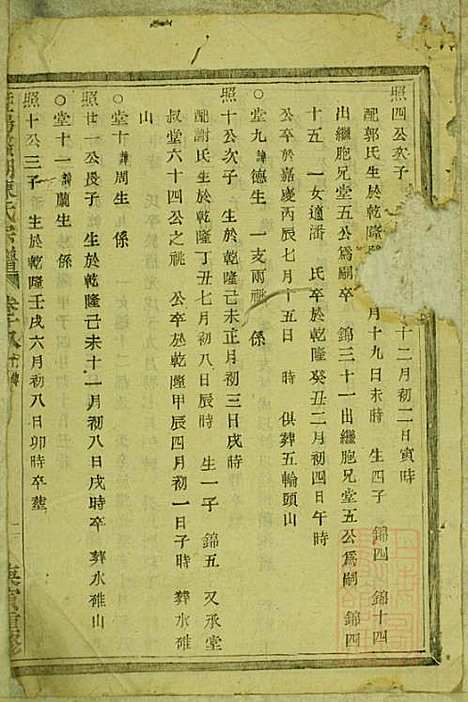 照四公次子 十二月初二日寅時
配郭氏生於乾隆 月十九日未時 生四子 錦四 錦十四
出繼胞兄堂五公爲嗣卒 錦三十一出繼胞兄堂五公爲嗣 錦四
十五 一女適潘 氏卒於乾隆癸丑二月初四日午時
公卒於嘉慶丙辰七月十五日 時 俱葬五輪頭山
○堂九諱德生 一支兩祧 係
照十公次子 生於乾隆己未正月初三日戌時
配謝氏生於乾隆丁丑七月初八日辰時 生一子 錦五 又承堂
叔堂六十四公之祧 公卒於乾隆甲辰四月初一日子時 葬水碓
山
○堂十諱周生 係
照廿一公長子 生於乾隆己未十一月初八日戌時卒 葬水碓山
○堂十一諱蘭生 係
照十公三子 生於乾隆壬戌六月初八日卯時卒葬
陳氏宗譜 卷十八